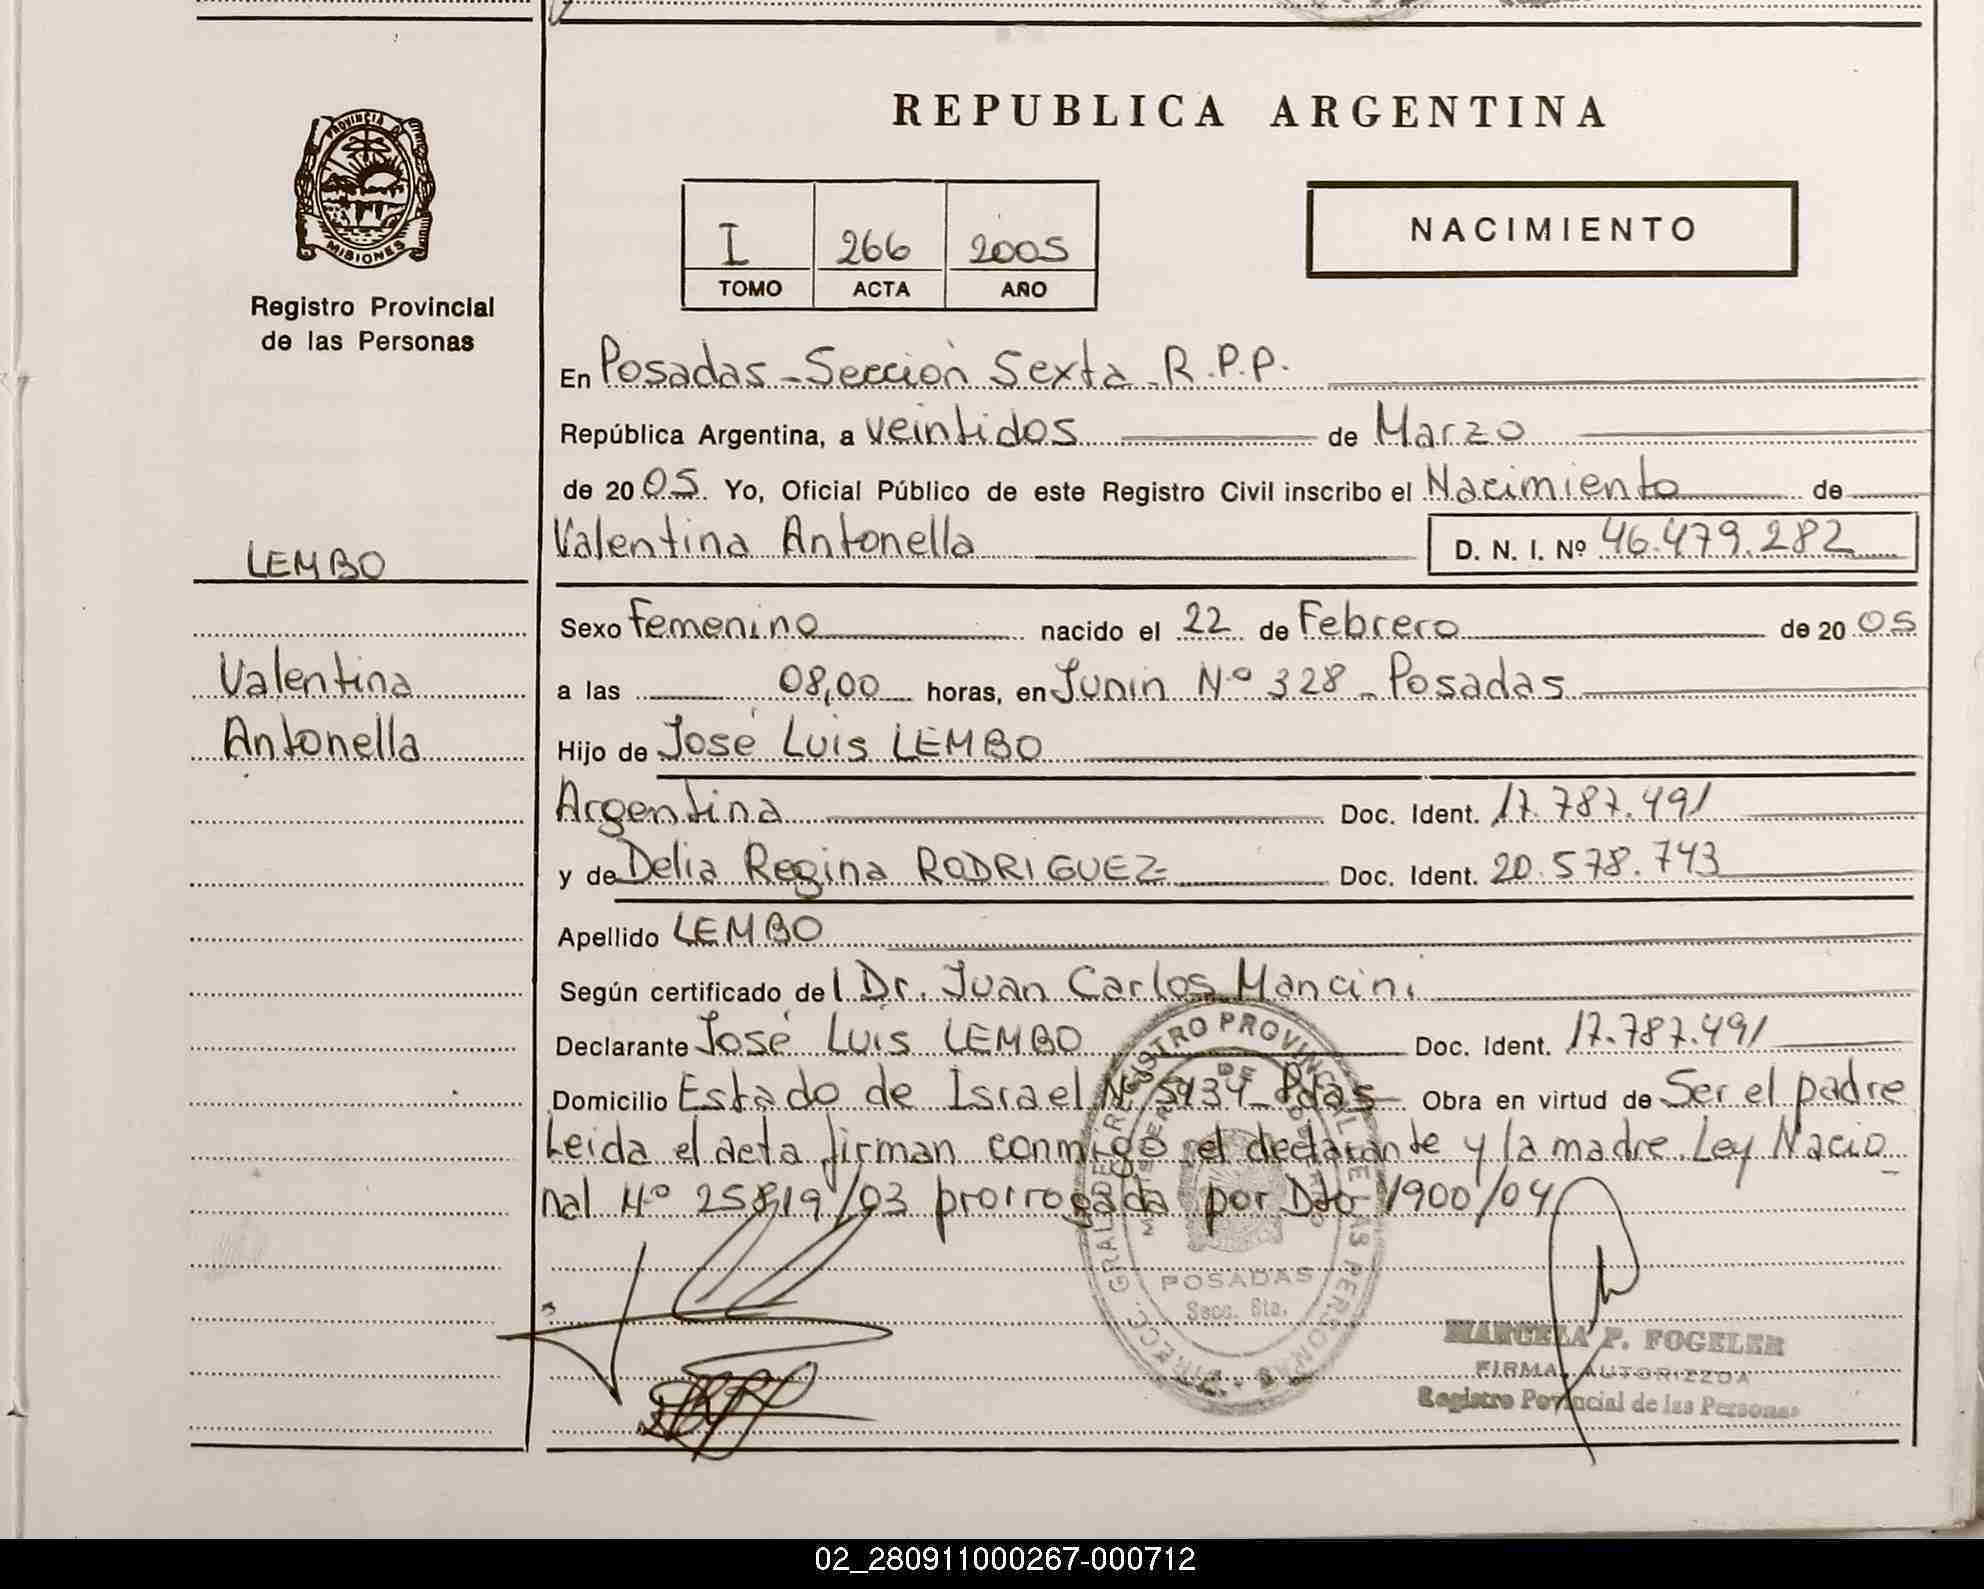 PROVINCIA DE
MISIONES
Registro Provincial
de las Personas
LEMBO
Valentina
Antonella
REPUBLICA ARGENTINA
I 266 2005
TOMO ACTA AÑO
NACIMIENTO
En Posadas - Sección Sexta - R.P.P.
República Argentina, a veintidos de Marzo
de 2005. Yo, Oficial Público de este Registro Civil inscribo el Nacimiento de
Valentina Antonella D. N. I. Nº 46.479.282
Sexo Femenino nacido el 22 de Febrero de 2005
a las 08,00 horas, en Junin Nº 328 - Posadas
Hijo de José Luis LEMBO
Argentina Doc. Ident. 17.787.491
y de Delia Regina RODRIGUEZ Doc. Ident. 20.578.743
Apellido LEMBO
Según certificado del Dr. Juan Carlos Mancini
Declarante José Luis LEMBO Doc. Ident. 17.787.491
Domicilio Estado de Israel Nº 5434 - Pdas Obra en virtud de Ser el padre
Leida el acta firman conmigo el declarante y la madre. Ley Nacio
nal Nº 25819/03 prorrogada por Dto 1900/04
DIRECC. GRAL. DE REGISTRO PROVINCIAL DE LAS PERSONAS
POSADAS
Secc. 6ta.
MARCELA P. FOGELER
FIRMA AUTORIZZDA
Registro Povincial de las Personas
02_280911000267-000712